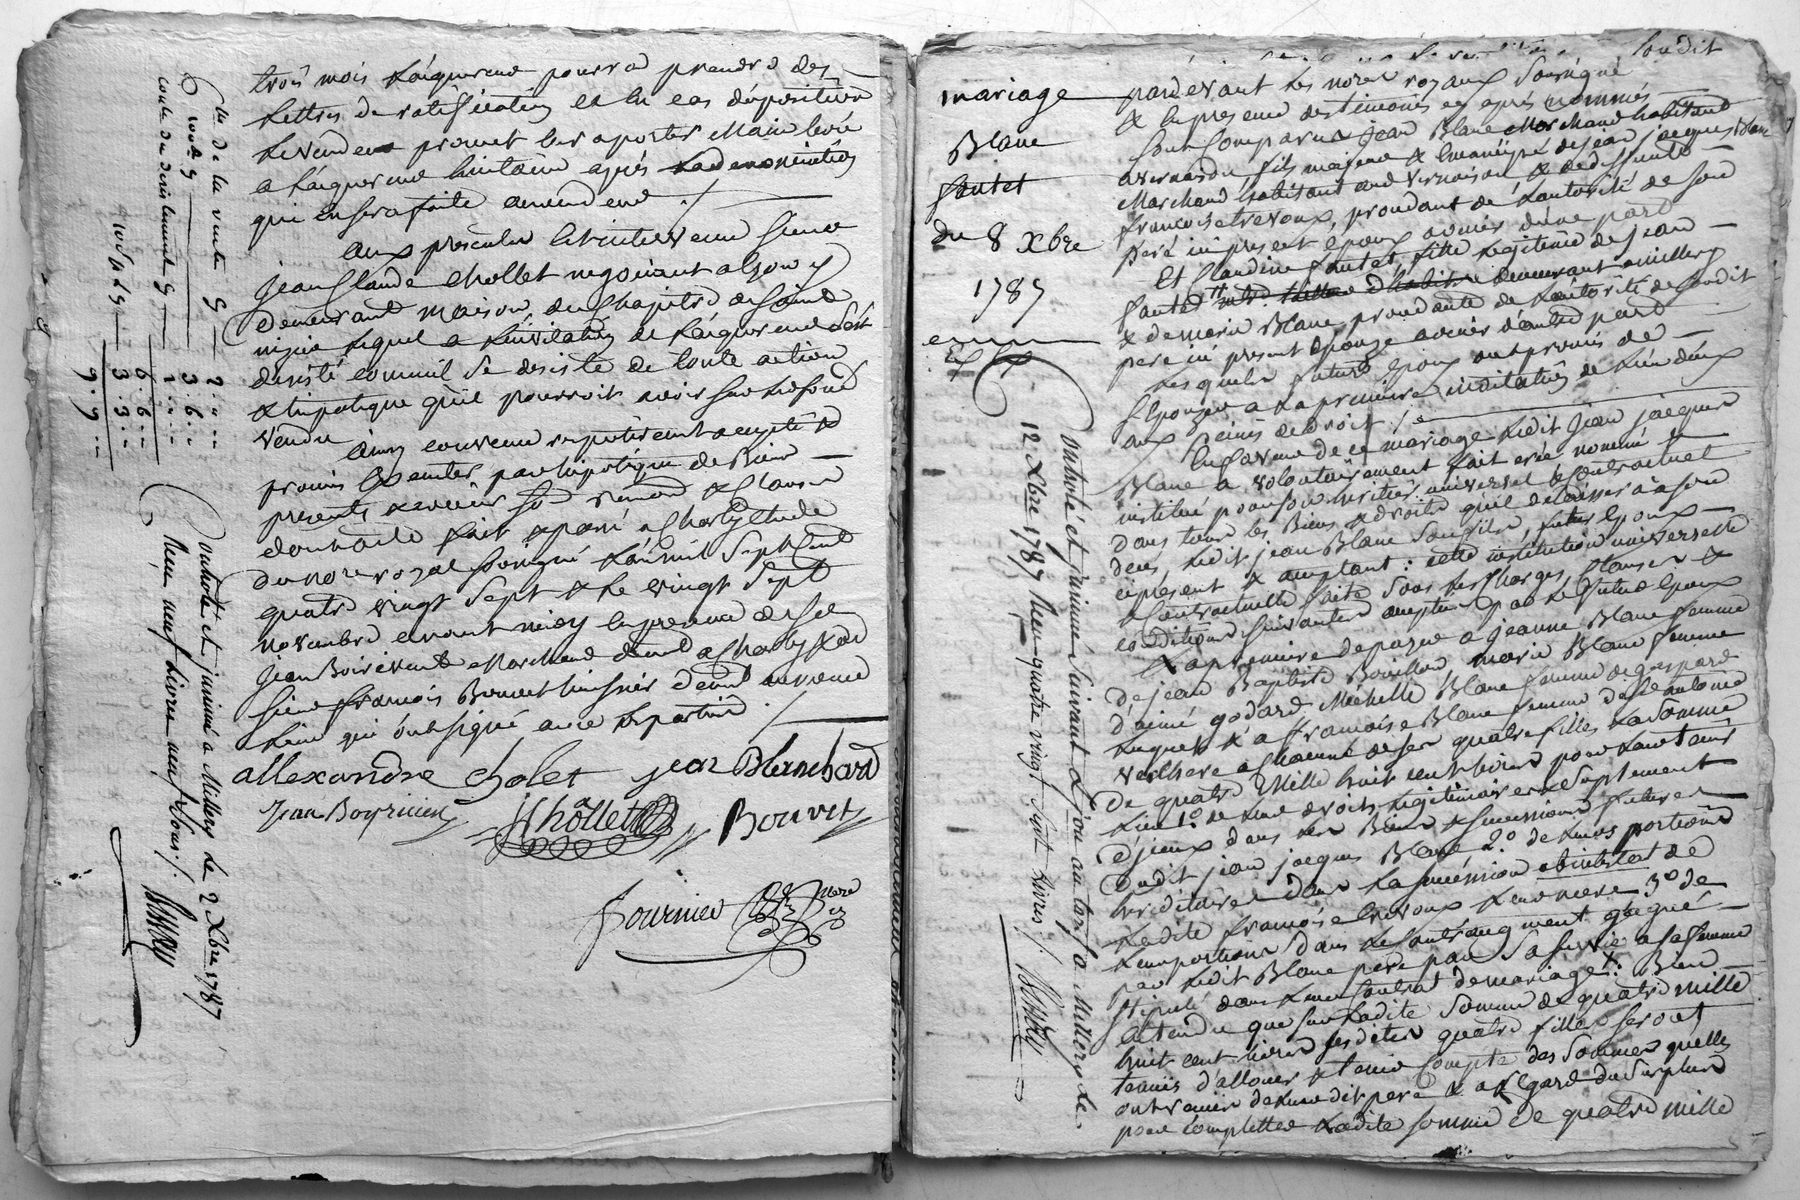 trois mois Lâquereur pourra prendre des
Lettres de ratification et la cas dóposition
Levendeur promet luy aporter Main levée
a Lâquereur huitaine après La denonciation
qui en sera faite au vendeur ./
aux presentes est intervenu sieur
Jean Claude Chollet negociant a Lyon y
demeurant maison du Chapitre de saint
nizier Lequel a Linvitation de Lâquereur s'est
desisté comme il se desiste de toute action
& hipotèque qu'il pourroit avoir sur Le fond
vendu
ainsy convenu respectivement accepté &
promis observer par hipotèque de Biens
presents & avenir renond & clauses
dont acte fait & passé a Charly Etude
du no.re royal soussigné Lan mil sept Cent
quatre vingt sept & Le vingt sept
novembre avant midy en presence de sr
Jean Boiricent Marchand demt a Charly & du
sieur francois Bouvet huissier demt au meme
Lieu qui ont signé avec Les parties ./
allexandre Cholet jean Blanchard
Jean Boyricent
J Chollet
Bouvet
Fournier
nore
Cte de la vente
controlle du desistement
100d
2 . . . .
3 . 6 . .
1 . . . .
6 . 6 . .
3 . 3 . .
9 . 9 . .
Controlé et insinué a Millery Le 2 Xbre 1787
Reçu neuf Livres neuf sous ./.
mariage
Blanc
fautet
du 8 Xbre
1787
pardevant Les nores royaux soussignés
& en presence des temoins cy après nommés
sont comparus jean Blanc Marchand habitant
a vernaison fils majeur & Emancipé de jean jacques Blanc
Marchand habitant aud vernaison & de deffunte
francoise trevoux, procedant de Lautorité de son
père ici present Epoux avenir dune part
Et Claudine fautet fille Legitime de jean
fautet demeurant a millery
& de marie Blanc procedante de Lautorité de sondit
pere ici present Epouze avenir d'autre part
Lesquels futurs Epoux ont promis de
s'Epouzer a La premiere invitation de L'un d'eux
aux peines de droit ./
En faveur de ce mariage Ledit jean jacques
Blanc a volontairement fait créé nommé &
institué pour son heritier universel & Contractuel
dans tous les Biens & droits qu'il delaissera a son
deces, Ledit jean Blanc son fils, futur Epoux
ici present & acceptant : cette institution universelle
& Contractuelle faite sous les charges, clauses &
conditions suivantes acceptées par Le futur Epoux
La premiere de payer a jeanne Blanc femme
de jean Baptiste Bouillon, marie Blanc femme
d'aimé godard, Michelle Blanc femme de gaspard
Luquet & a francoise Blanc femme de antoine
verchere a chacune de ses quatre filles La somme
de quatre mille huit cent Livres pour Leur tenir
Lieu 1.° de Leurs droits Legitimaires & suplement
d'jceux dans les Biens & successions futures
dudit jean jacques Blanc 2.° de Leurs portions
hereditaires dans La succession abintestat de
Ladite francoise trevoux Leur mere 3° de
Leur portions dans Le Contraugment gagné
par Ledit Blanc pere par sa survie a sa femme
stipulé dans Leur Contrat de mariage : Bien
entendu que sur Ladite somme de quatre mille
huit cent Livres Lesdites quatre filles seront
tenues d'allouer & tenir compte des sommes qu'elles
ont reçues de Leurdit pere & a L'Egard du surplus
pour completter Ladite somme de quatre mille
Controlé et insinué suivant L'ou au tarif a Millery Le
12 Xbre 1787 Reçu quatre vingt sept Livres